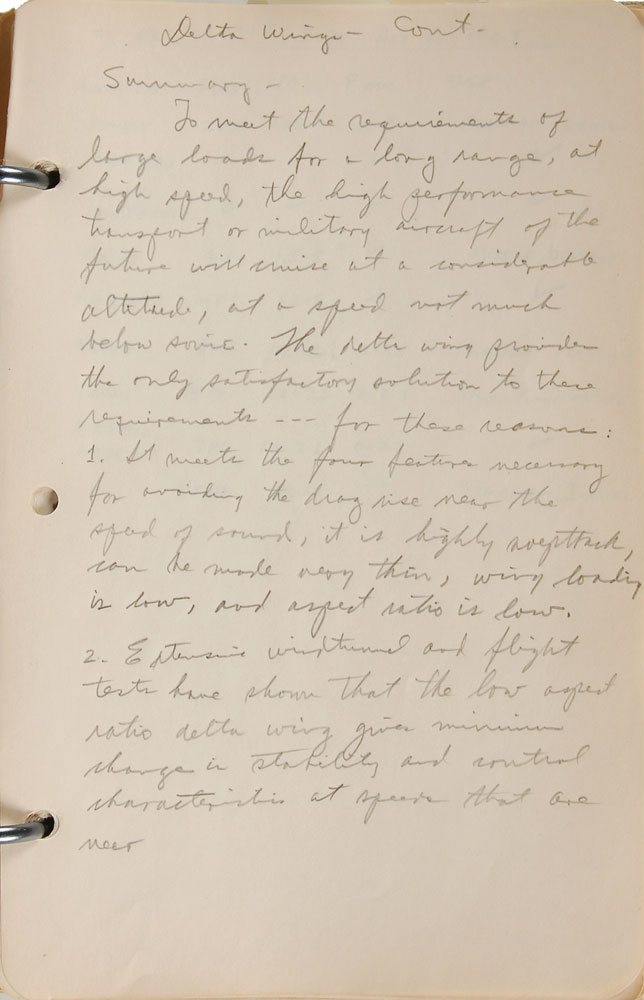 Delta Wings - Cont -
Summary -
To meet the requirements of
large loads for a long range, at
high speed, the high performance
transport or military aircraft of the
future will cruise at a considerable
altitude, at a speed not much
below sonic. The delta wing provides
the only satisfactory solution to these
requirements --- for these reasons:
1. It meets the four features necessary
for avoiding the drag rise near the
speed of sound, it is highly sweptback,
can be made very thin, wing loading
is low, and aspect ratio is low.
2. Extensive windtunnel and flight
tests have shown that the low aspect
ratio delta wing gives minimum
change in stability and control
characteristics at speeds that are
near